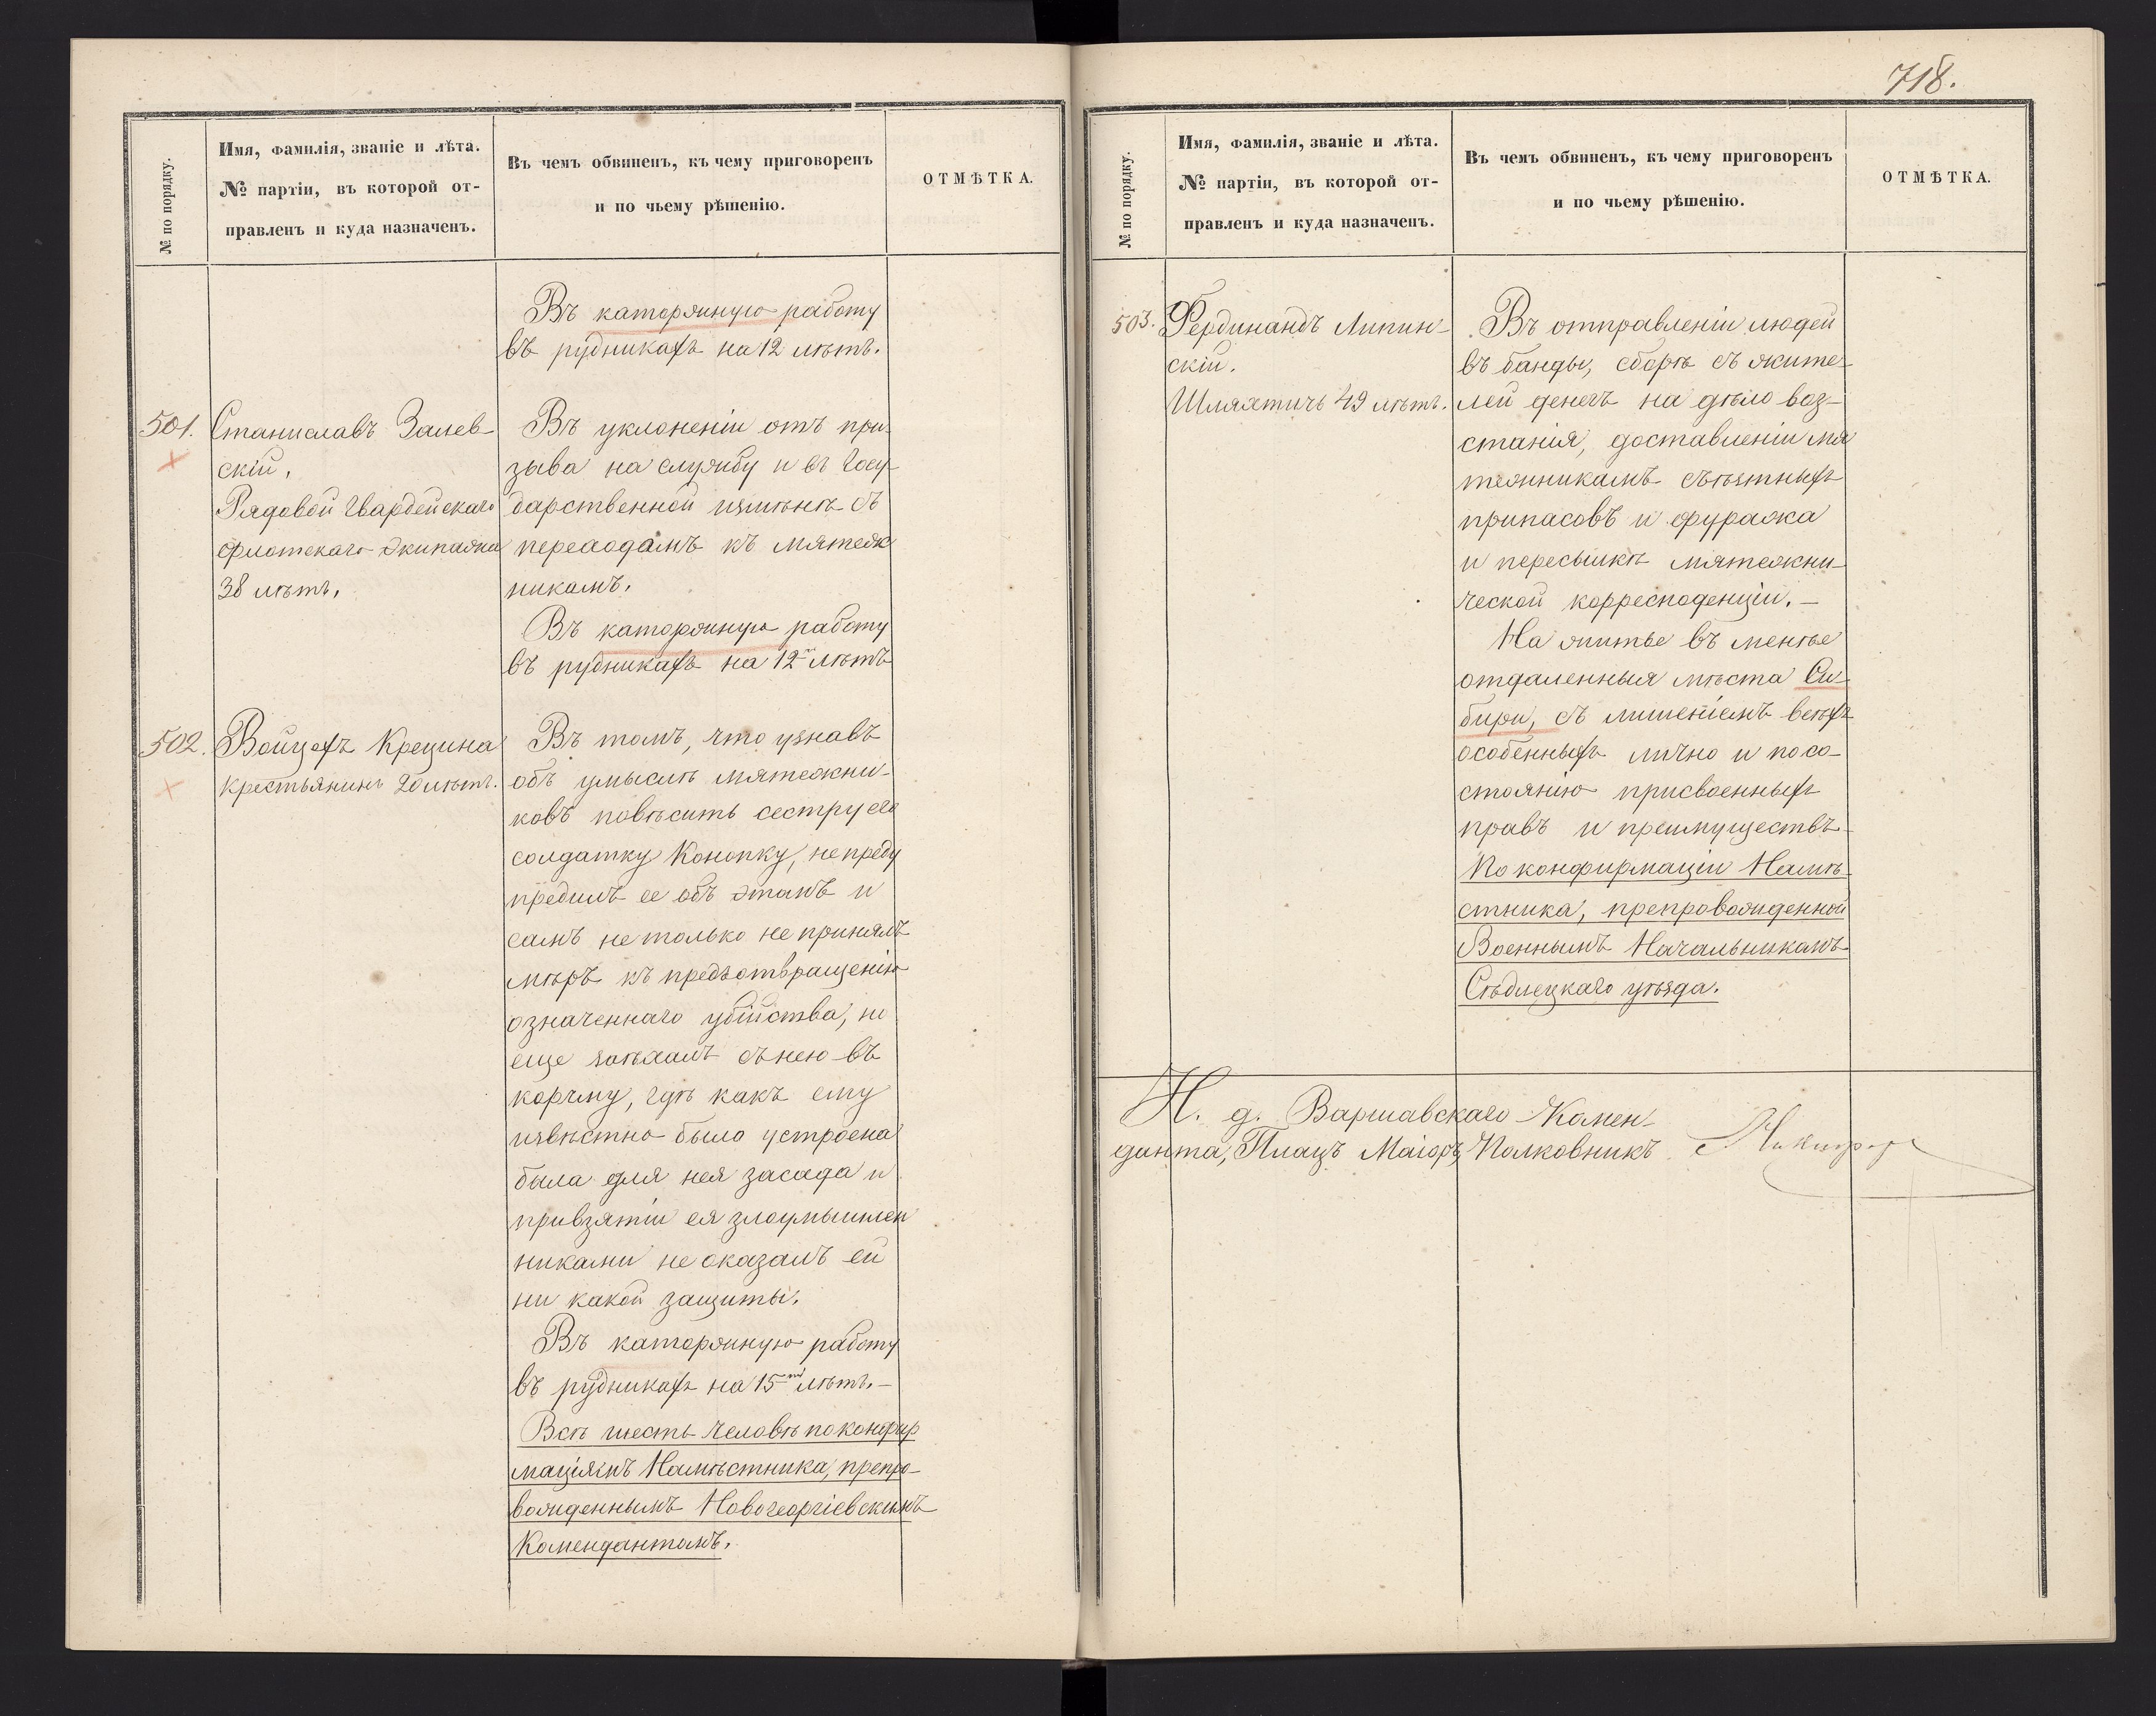 № по порядку.
Имя, фамилія, званіе и лѣта.
№ партіи, въ которой от-
правленъ и куда назначенъ.
Въ чемъ обвиненъ, къ чему приговоренъ
и по чьему рѣшенію.
ОТМѢТКА.
Въ каторжную работу
въ рудникахъ на 12 лѣтъ.
501.
Станиславъ Залев-
скій.
Рядовой Гвардейскаго
флотскаго Экипажа
38 лѣтъ.
Въ уклоненіи отъ при-
зыва на службу и въ Госу-
дарственной измѣнѣ съ
переходомъ къ мятеж
никамъ.
Въ каторжную работу
въ рудникахъ на 12 лѣтъ
502.
Войцехъ Крецина
Крестьянинъ 26 лѣтъ.
Въ томъ, что узнавъ
объ умыслѣ мятежни-
ковъ повѣсить сестру его
солдатку Конопку, не преду
предилъ ее объ этомъ и
самъ не только не принялъ
мѣръ къ предъотвращенію
означеннаго убійства, но
еще заѣхалъ съ нею въ
корчму, гдѣ какъ ему
извѣстно было устроена
была для нея засада и
при взятіи ея злоумышлен
никами не оказалъ ей
ни какой защиты.
Въ каторжную работу
въ рудникахъ на 15ть лѣтъ.—
Всѣ шесть человѣ по конфир
маціямъ Намѣстника, препро-
вожденнымъ Новогеоргіевскимъ
Комендантомъ.
718.
№ по порядку.
Имя, фамилія, званіе и лѣта.
№ партіи, въ которой от-
правленъ и куда назначенъ.
Въ чемъ обвиненъ, къ чему приговоренъ
и по чьему рѣшенію.
ОТМѢТКА.
503.
Фердинандъ Липин-
скій.
Шляхтичъ 49 лѣтъ.
Въ отправленіи людей
въ банды, сборѣ съ жите-
лей денегъ на дѣло воз-
станія, доставленіи мя
тежникамъ съѣстныхъ
припасовъ и фуража
и пересылкѣ мятежни-
ческой корресподенціи.—
На житье въ менѣе
отдаленныя мѣста Си-
бири, съ лишеніемъ всѣхъ
особенныхъ лично и по со-
стоянію присвоенныхъ
правъ и преимуществъ
По конфирмаціи Намѣ-
стника, препровожденной
Военнымъ Начальникомъ
Сѣдлецкаго уѣзда.
И. д. Варшавскаго Комен-
данта, Плацъ Маіоръ, Полковникъ